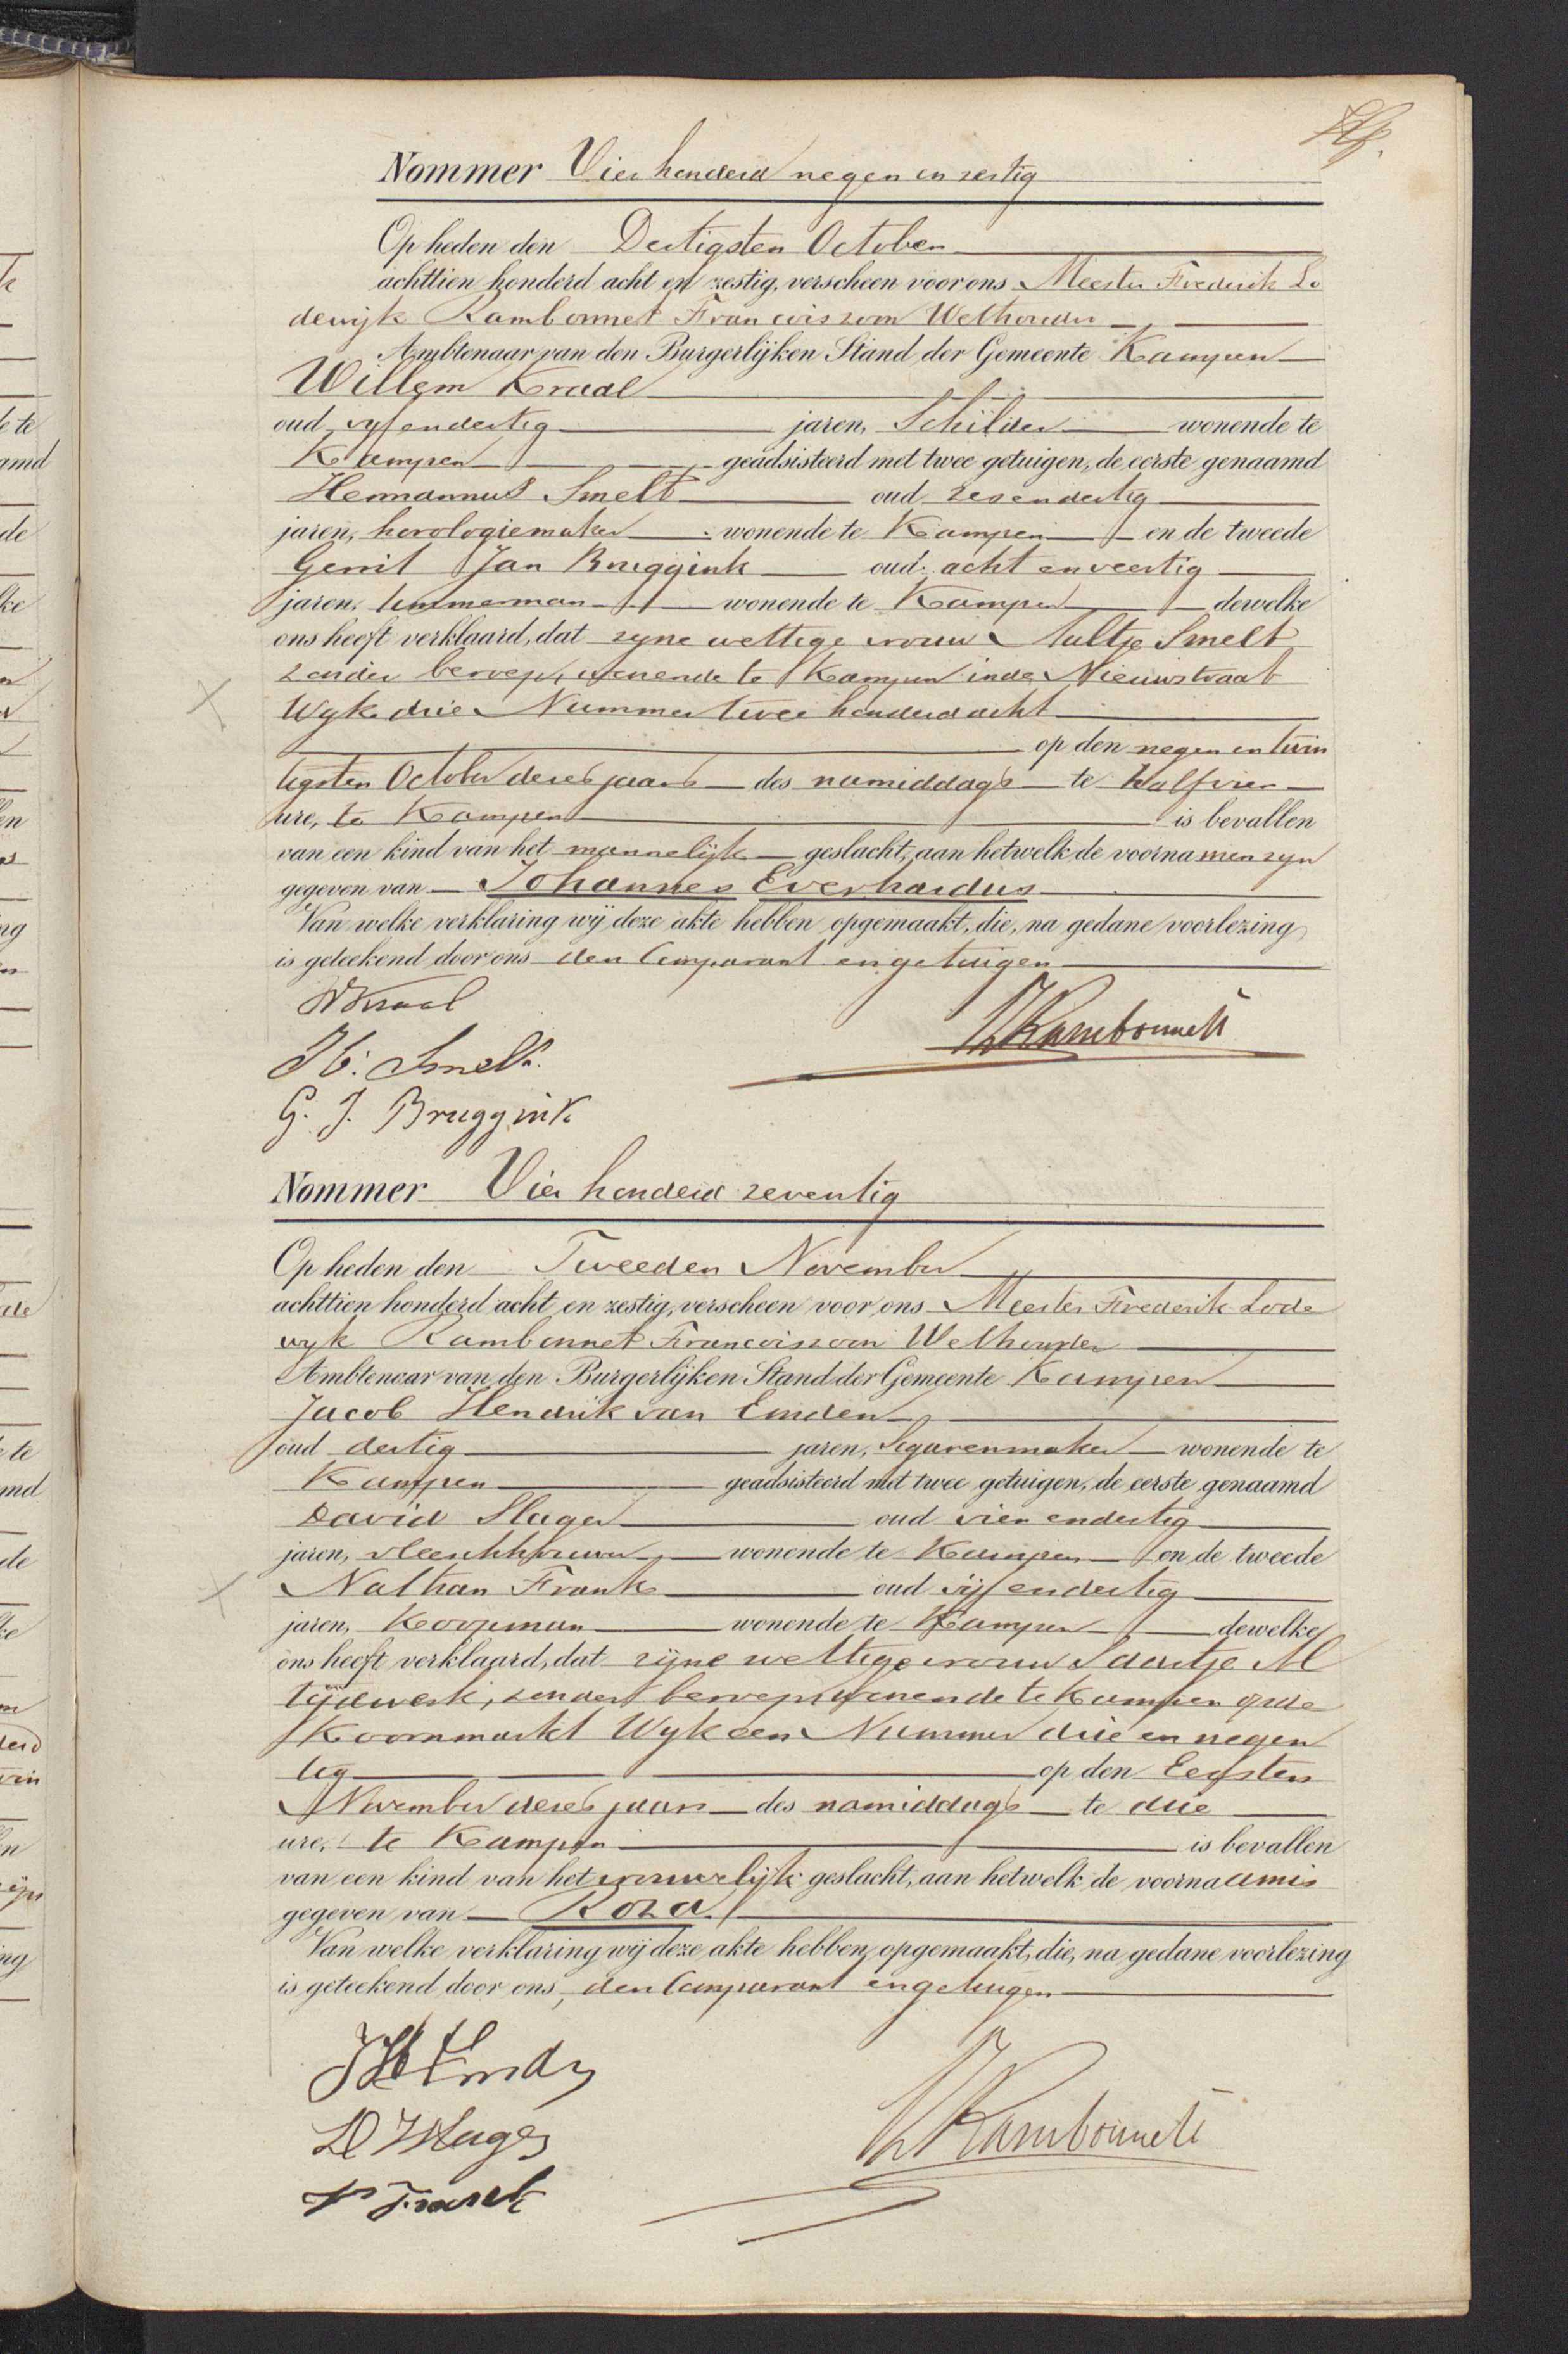 Nommer Vier honderd negen en zestig
Op heden den Dertigsten October
achttien honderd acht en zestig, verscheen voor ons Meester Frederik Lo
dewijk Rambonnet Francoiszoon Wethouder
Ambtenaar van den Burgerlijken Stand der Gemeente Kampen
Willem Kraal
oud vyf en dertig jaren, Schilder wonende te
Kampen geädsisteerd met twee getuigen, de eerste genaamd
Hermannus Smelt oud zes en dertig
jaren, horologiemaker wonende te Kampen en de tweede
Gerrit Jan Bruggink oud acht en veertig
jaren, timmerman wonende te Kampen dewelke
ons heeft verklaard, dat zyne wettige vrouw Aultje Smelt
zonder beroep, wonende te Kampen in de Nieuwstraat
Wyk drie Nummer twee honderd acht
op den negen en twin
tigsten October dezes jaars des namiddags te half vier
ure, te Kampen is bevallen
van een kind van het mannelijk geslacht, aan hetwelk de voornamen zyn
gegeven van Johannes Everhardus
Van welke verklaring wij deze akte hebben opgemaakt, die, na gedane voorlezing
is geteekend door ons den Comparant en getuigen
W Kraal
FL Rambonnet
H. Smelt.
G. J. Bruggink
Nommer Vier honderd zeventig
Op heden den Tweeden November
achttien honderd acht en zestig, verscheen voor ons Meester Frederik Lode
wyk Rambonnet Francoiszoon Wethouder
Ambtenaar van den Burgerlijken Stand der Gemeente Kampen
Jacob Hendrik van Emden
oud dertig jaren, Sigarenmaker wonende te
Kampen geadsisteerd met twee getuigen, de eerste genaamd
David Slager oud vier en dertig
jaren, vleeschhouwer wonende te Kampen en de tweede
Nathan Frank oud vijf en dertig
jaren, Koopman wonende te Kampen dewelke
ons heeft verklaard, dat zijne wettige vrouw Saartje Al
tijdwerk, zonder beroep, wonende te Kampen op de
Koornmarkt Wyk een Nummer drie en negen
tig op den Eersten
November dezes jaars des namiddags te drie
ure, te Kampen is bevallen
van een kind van het vrouwelijk geslacht, aan hetwelk de voornaam is
gegeven van Roza
Van welke verklaring wij deze akte hebben opgemaakt, die, na gedane voorlezing
is geteekend door ons, den Comparant en getuigen
FL Rambonnet
N Frank